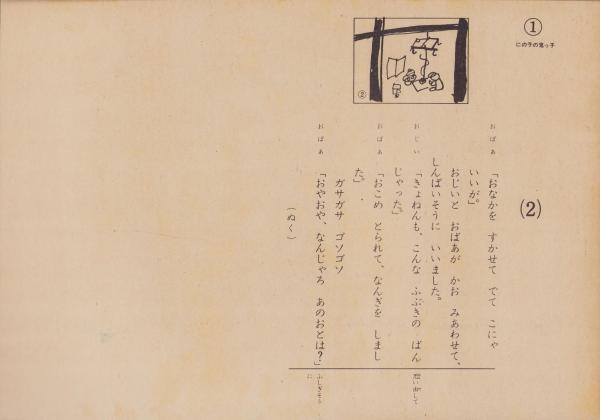 ①
にの子の鬼っ子
②
(2)
おばあ 「おなかを すかせて でて こにゃ
いいが。」
おじいと おばあが かお みあわせて、
しんぱいそうに いいました。
おじい 「きょねんも、こんな ふぶきの ばん
じゃった。」
おばあ 「おこめ とられて、なんぎを しまし
た。」
ガサガサ ゴソゴソ
おばあ 「おやおや、なんじゃろ あのおとは？」
(ぬく)
思い出して
ふしぎそう
に